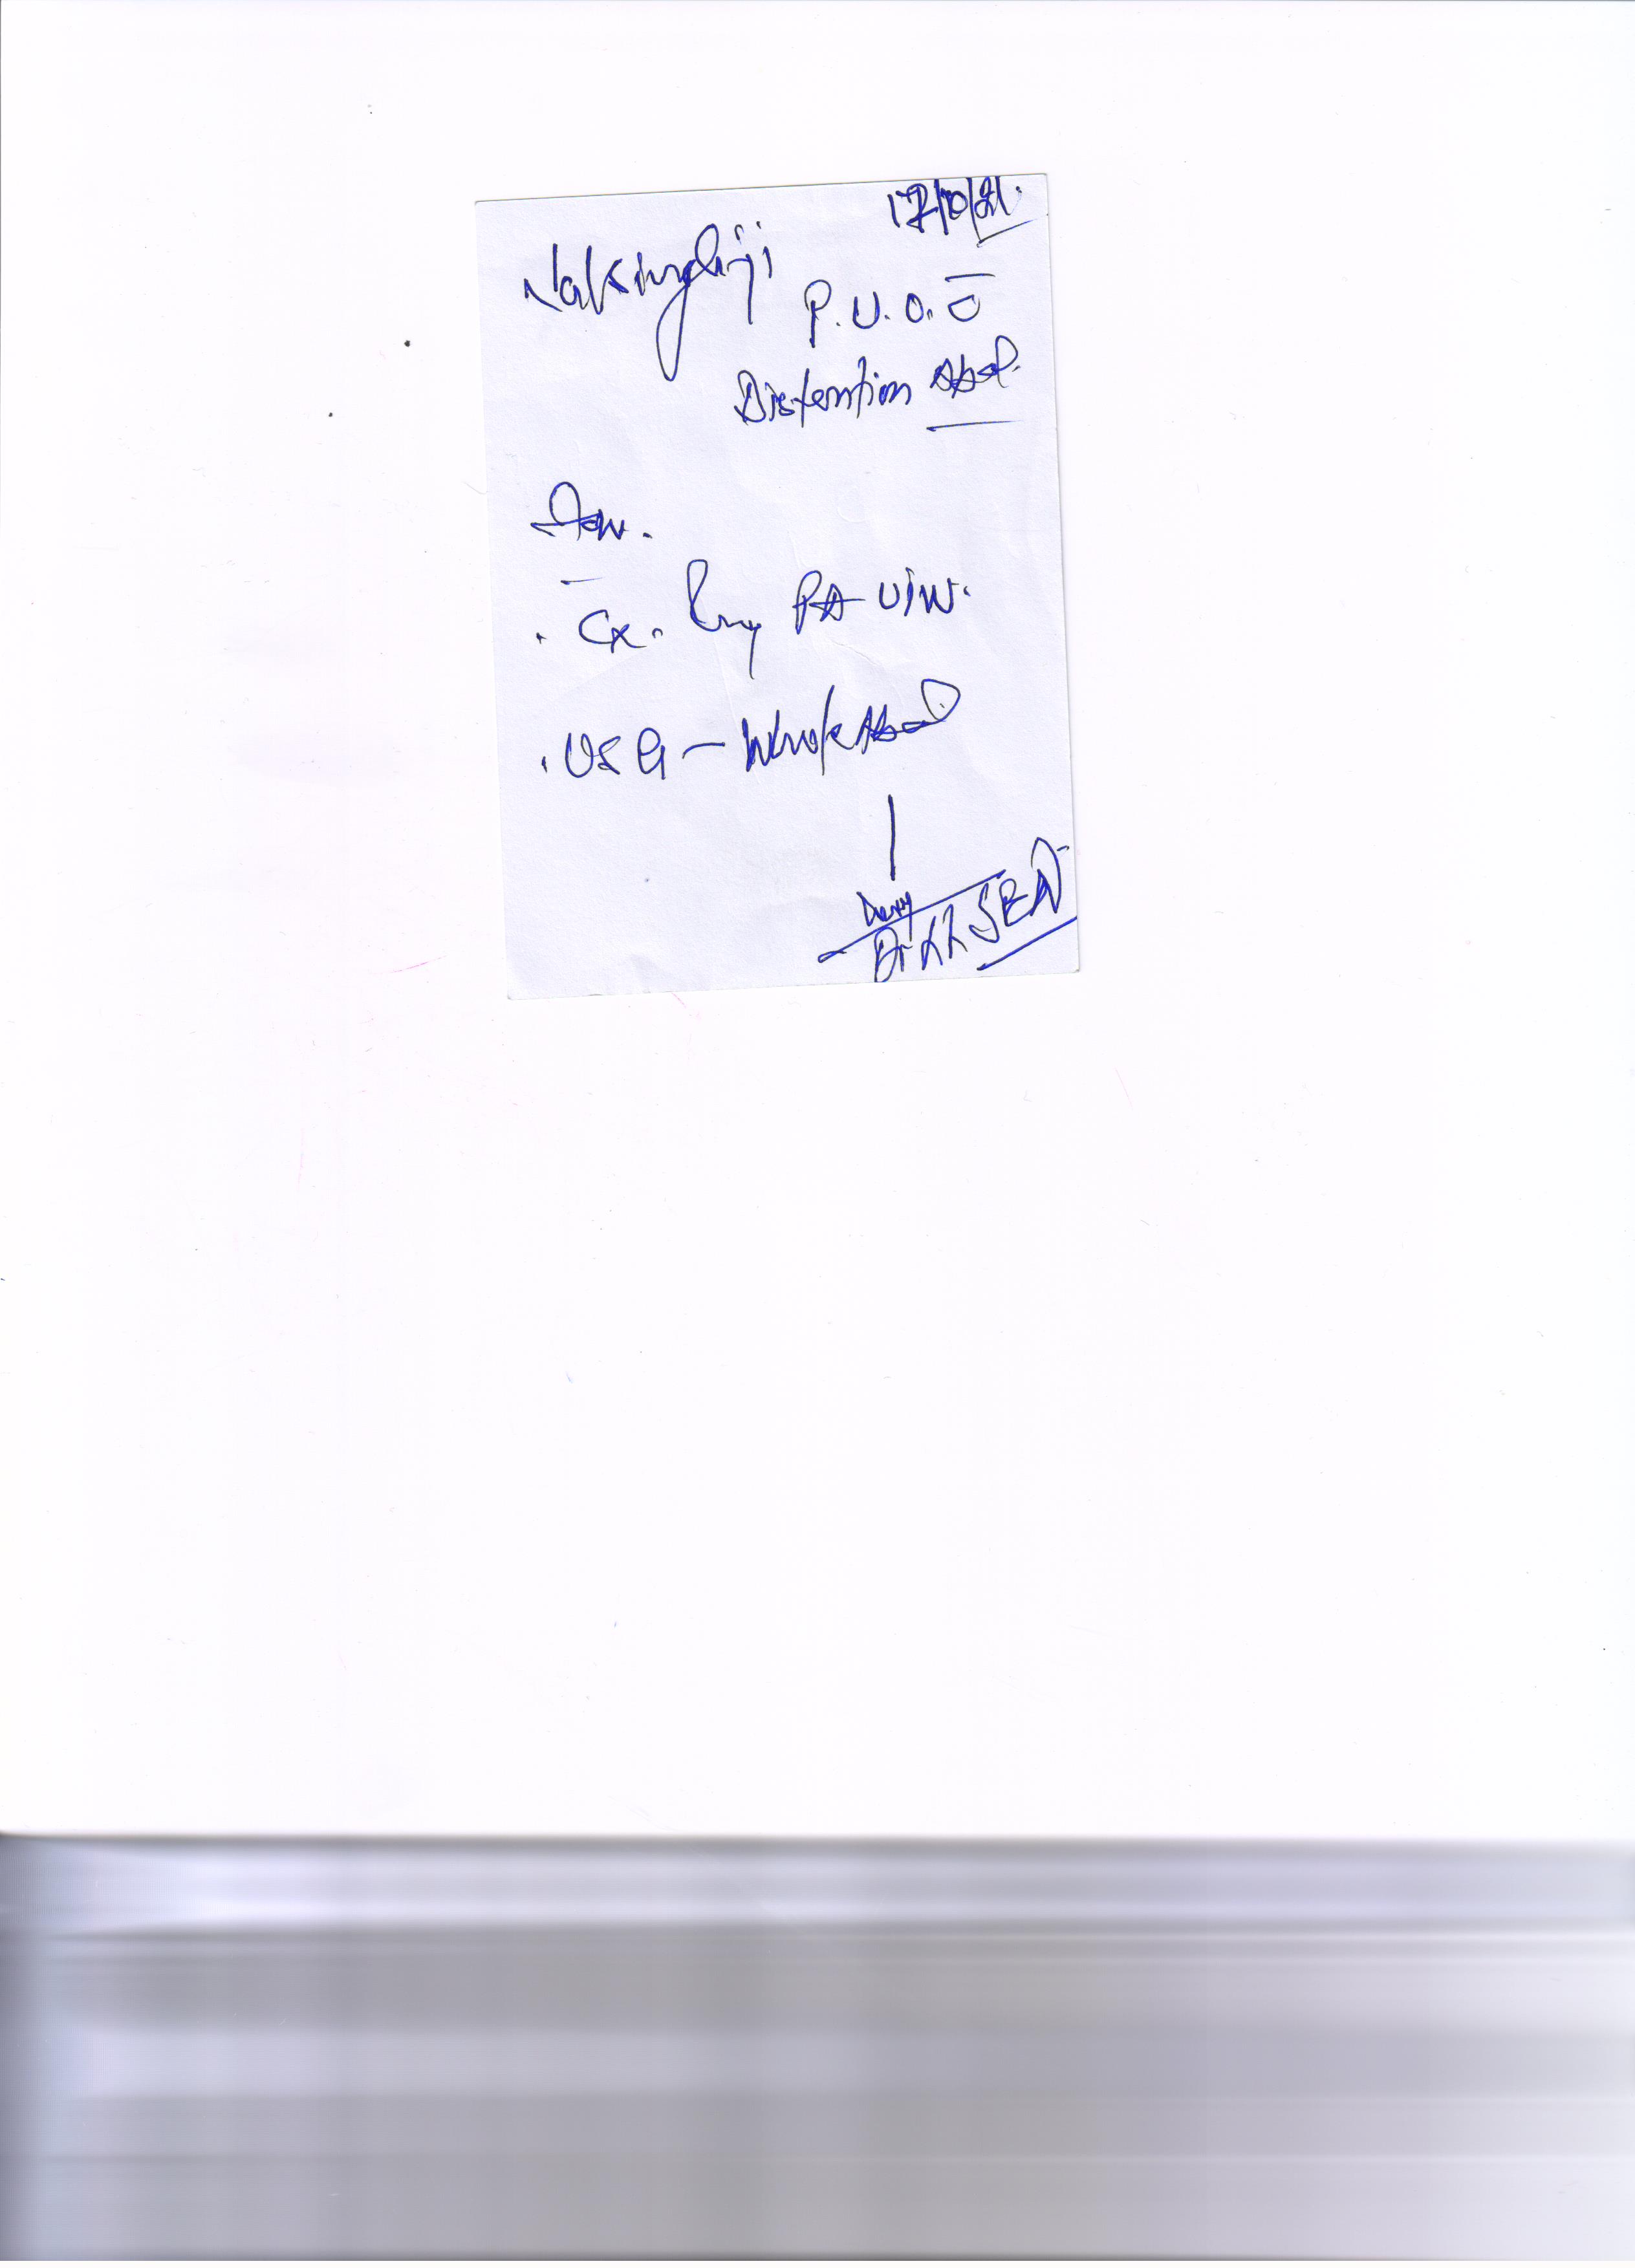 17/10/21.
P.U.O. c̄
Distention Abd.
Inv.
. Cx. Ray PA view.
. USG - Whole Abd
Dr SEN